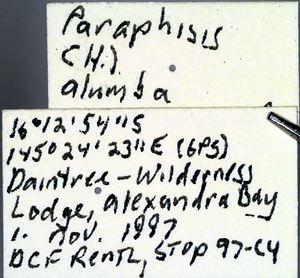 Paraphisis
(H.)
alumba
16°12'54"S
145°24'23"E (GPS)
Daintree-Wilderness
Lodge, Alexandra Bay
1. Nov. 1997
DCF Rentz, Stop 97-64